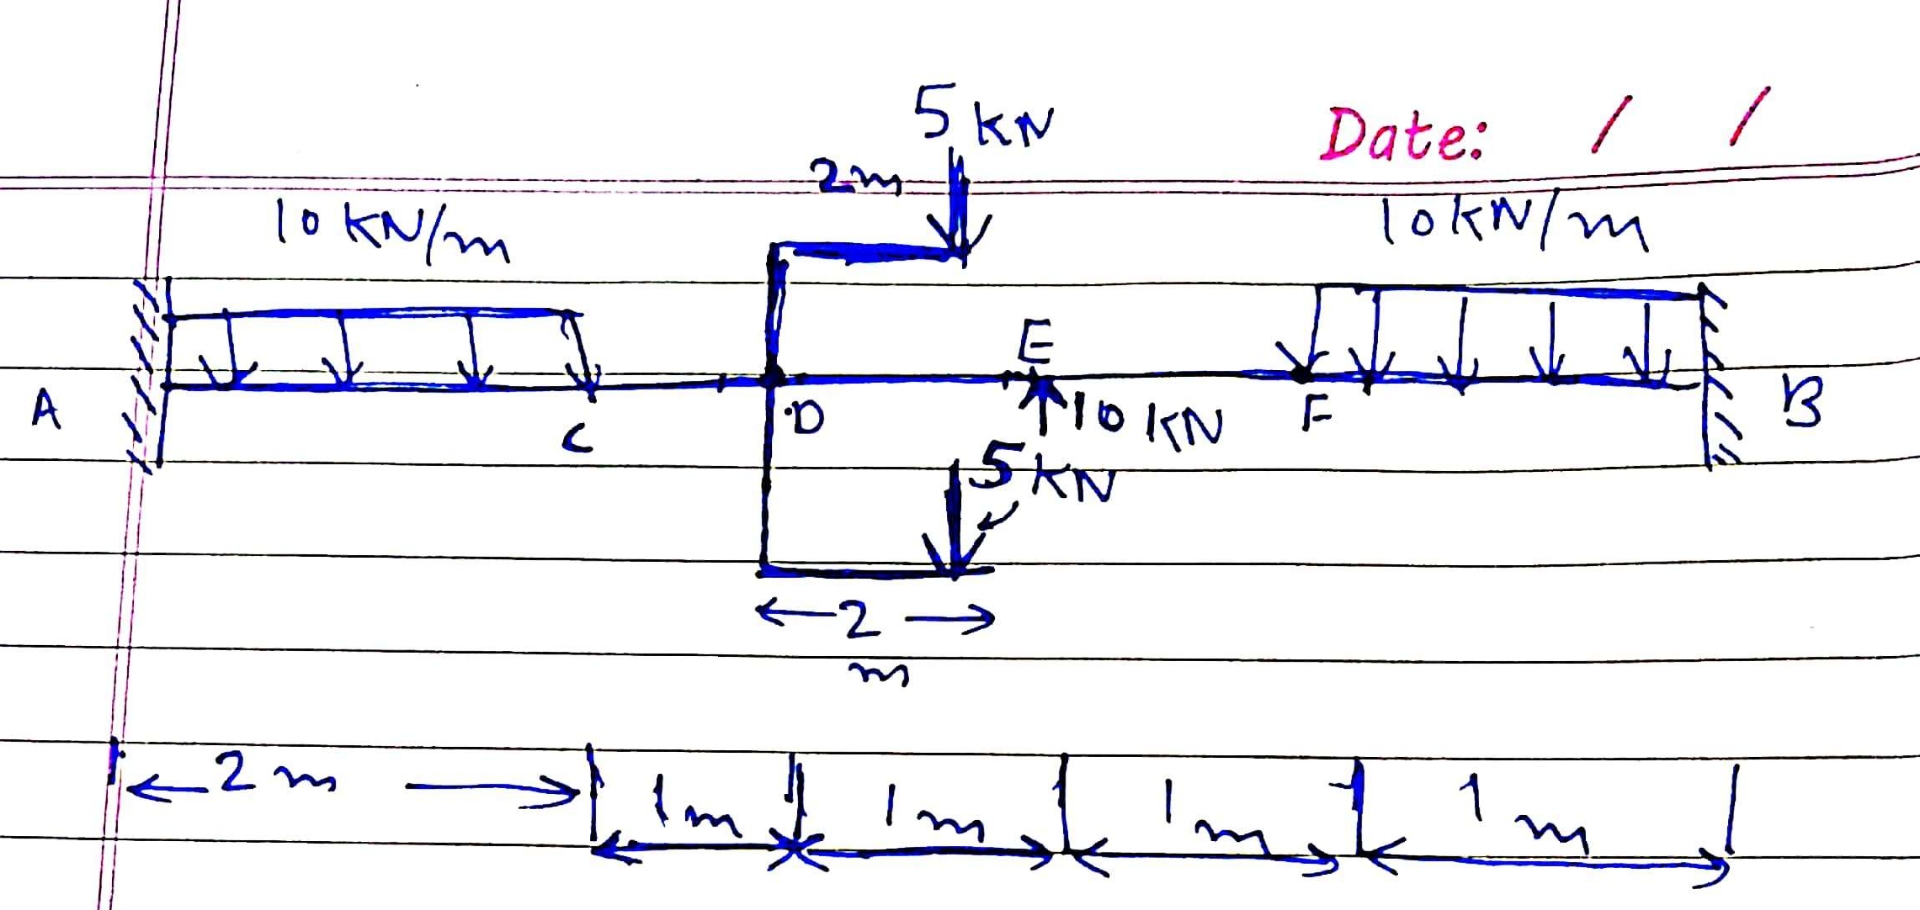 5 kN
2m
Date: / /
10 KN/m
10 kN/m
E
A
C
D
10 KN
F
B
5 KN
2
m
2 m
1 m
1 m
1 m
1 m